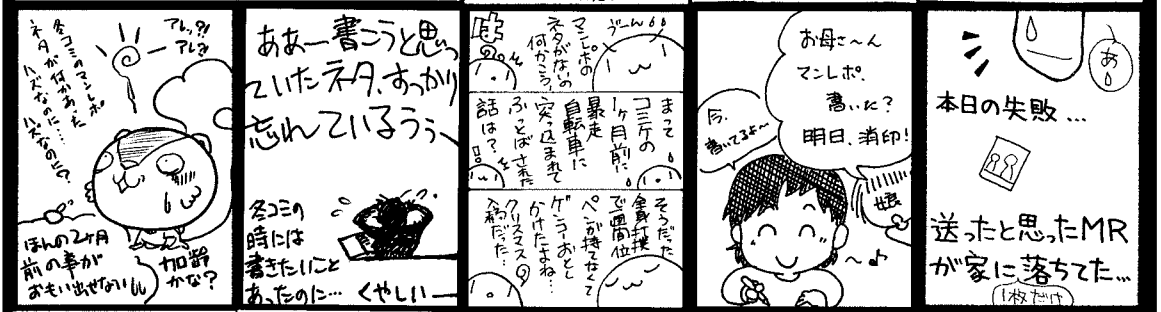 アレッ?!
アレ?!
冬コミのマンレポ
ネタが何かあった
ハズなのに…
ハズなのに?
ほんの2ヶ月
前の事が
おもい出せない
加齢
かな?
ああー書こうと思っ
ていたネタ、すっかり
忘れているうぅ〜
冬コミの
時には
書きたいこと
あったのに…
くやしい—
うーん
マンレポの
ネタがないの
何かこう、
まって
コミケの
1ヶ月前に
暴走
自転車に
突っ込まれて
ふっとばされた
話は?
そうだった
全身打撲
で一週間位
ペンが持てなくて
ゲンコーおとし
かけたよね…
クリスマス
だった…
お母さ〜ん
マンレポ、
書いた?
明日、消印!
今、
書いてるよ〜
娘
〜♪
あ
本日の失敗…
送ったと思ったMR
が家に落ちてた…
1枚だけ